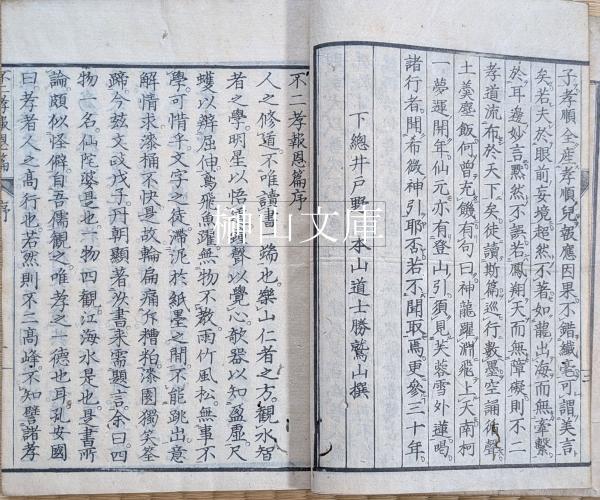 子孝順全産孝順兒報應因果不錯纖毫可謂美言
矣若夫於眼前妄境超然不著如龍出海而無牽繫
於耳邊妙言黙然不誤若鳳翔天而無障礙則不二
孝道流布於天下矣徒讀斯篇巡行數墨空誦循聲
土羹塵飯何曽充饑有句曰神龍躍淵飛上天南柯
一夢運開年仙元亦有登山引須見芙蓉雪外蓮喝
諸行者聞布微神引耶否若不聞取焉更參三十年
下總井戸野本山道士勝鷲山撰
不二孝報恩篇序
人之修道不唯讀書一端也樂山仁者之方觀水智
者之學明星以悟聲以覺心欹器以知盈虛尺
蠖以辨屈伸鳶飛魚躍無物不教雨竹風松無事不
學可惜乎文字之徒滯泥於紙墨之間不能跳出意
解情求漆桶不快是故輪扁痛斥糟粕漆園獨笑筌
蹄今茲文政戊子丹朝顯著次書來需題言余曰四
物一名仙陀婆是也一物四觀江海水是也是書所
論頗似怪僻自吾儒觀之唯孝之一德也耳孔安國
曰孝者人之高行也若然則不二高峰不知譬諸孝
不二孝報恩篇
序
榊山文庫